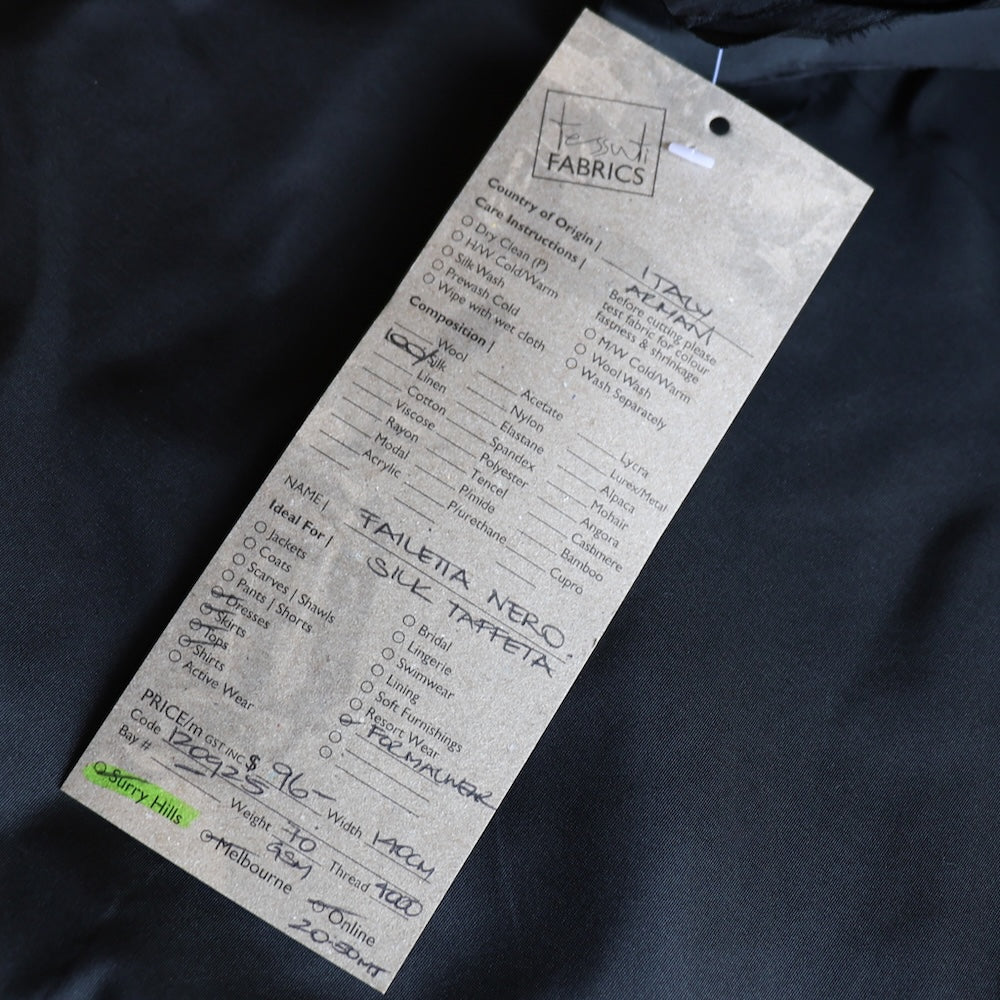 tessuti
FABRICS
Country of Origin | ITALY
ARMANI
Care Instructions |
Dry Clean (P)
H/W Cold/Warm
Silk Wash
Prewash Cold
Wipe with wet cloth
Before cutting please
test fabric for colour
fastness & shrinkage
M/W Cold/Warm
Wool Wash
Wash Separately
Composition |
Wool
100% Silk
Linen
Cotton
Viscose
Rayon
Modal
Acrylic
Acetate
Nylon
Elastane
Spandex
Polyester
Tencel
P/mide
P/urethane
Lycra
Lurex/Metal
Alpaca
Mohair
Angora
Cashmere
Bamboo
Cupro
NAME | FAILETTA NERO.
SILK TAFFETA
Ideal For |
Jackets
Coats
Scarves | Shawls
Pants | Shorts
Dresses
Skirts
Tops
Shirts
Active Wear
Bridal
Lingerie
Swimwear
Lining
Soft Furnishings
Resort Wear
FORMALWEAR
PRICE/m GST INC $ 96-
Code 120925
Width 140CM
Bay #
Weight 70 GSM
Thread 4000
Surry Hills
Melbourne
Online
20.50MT